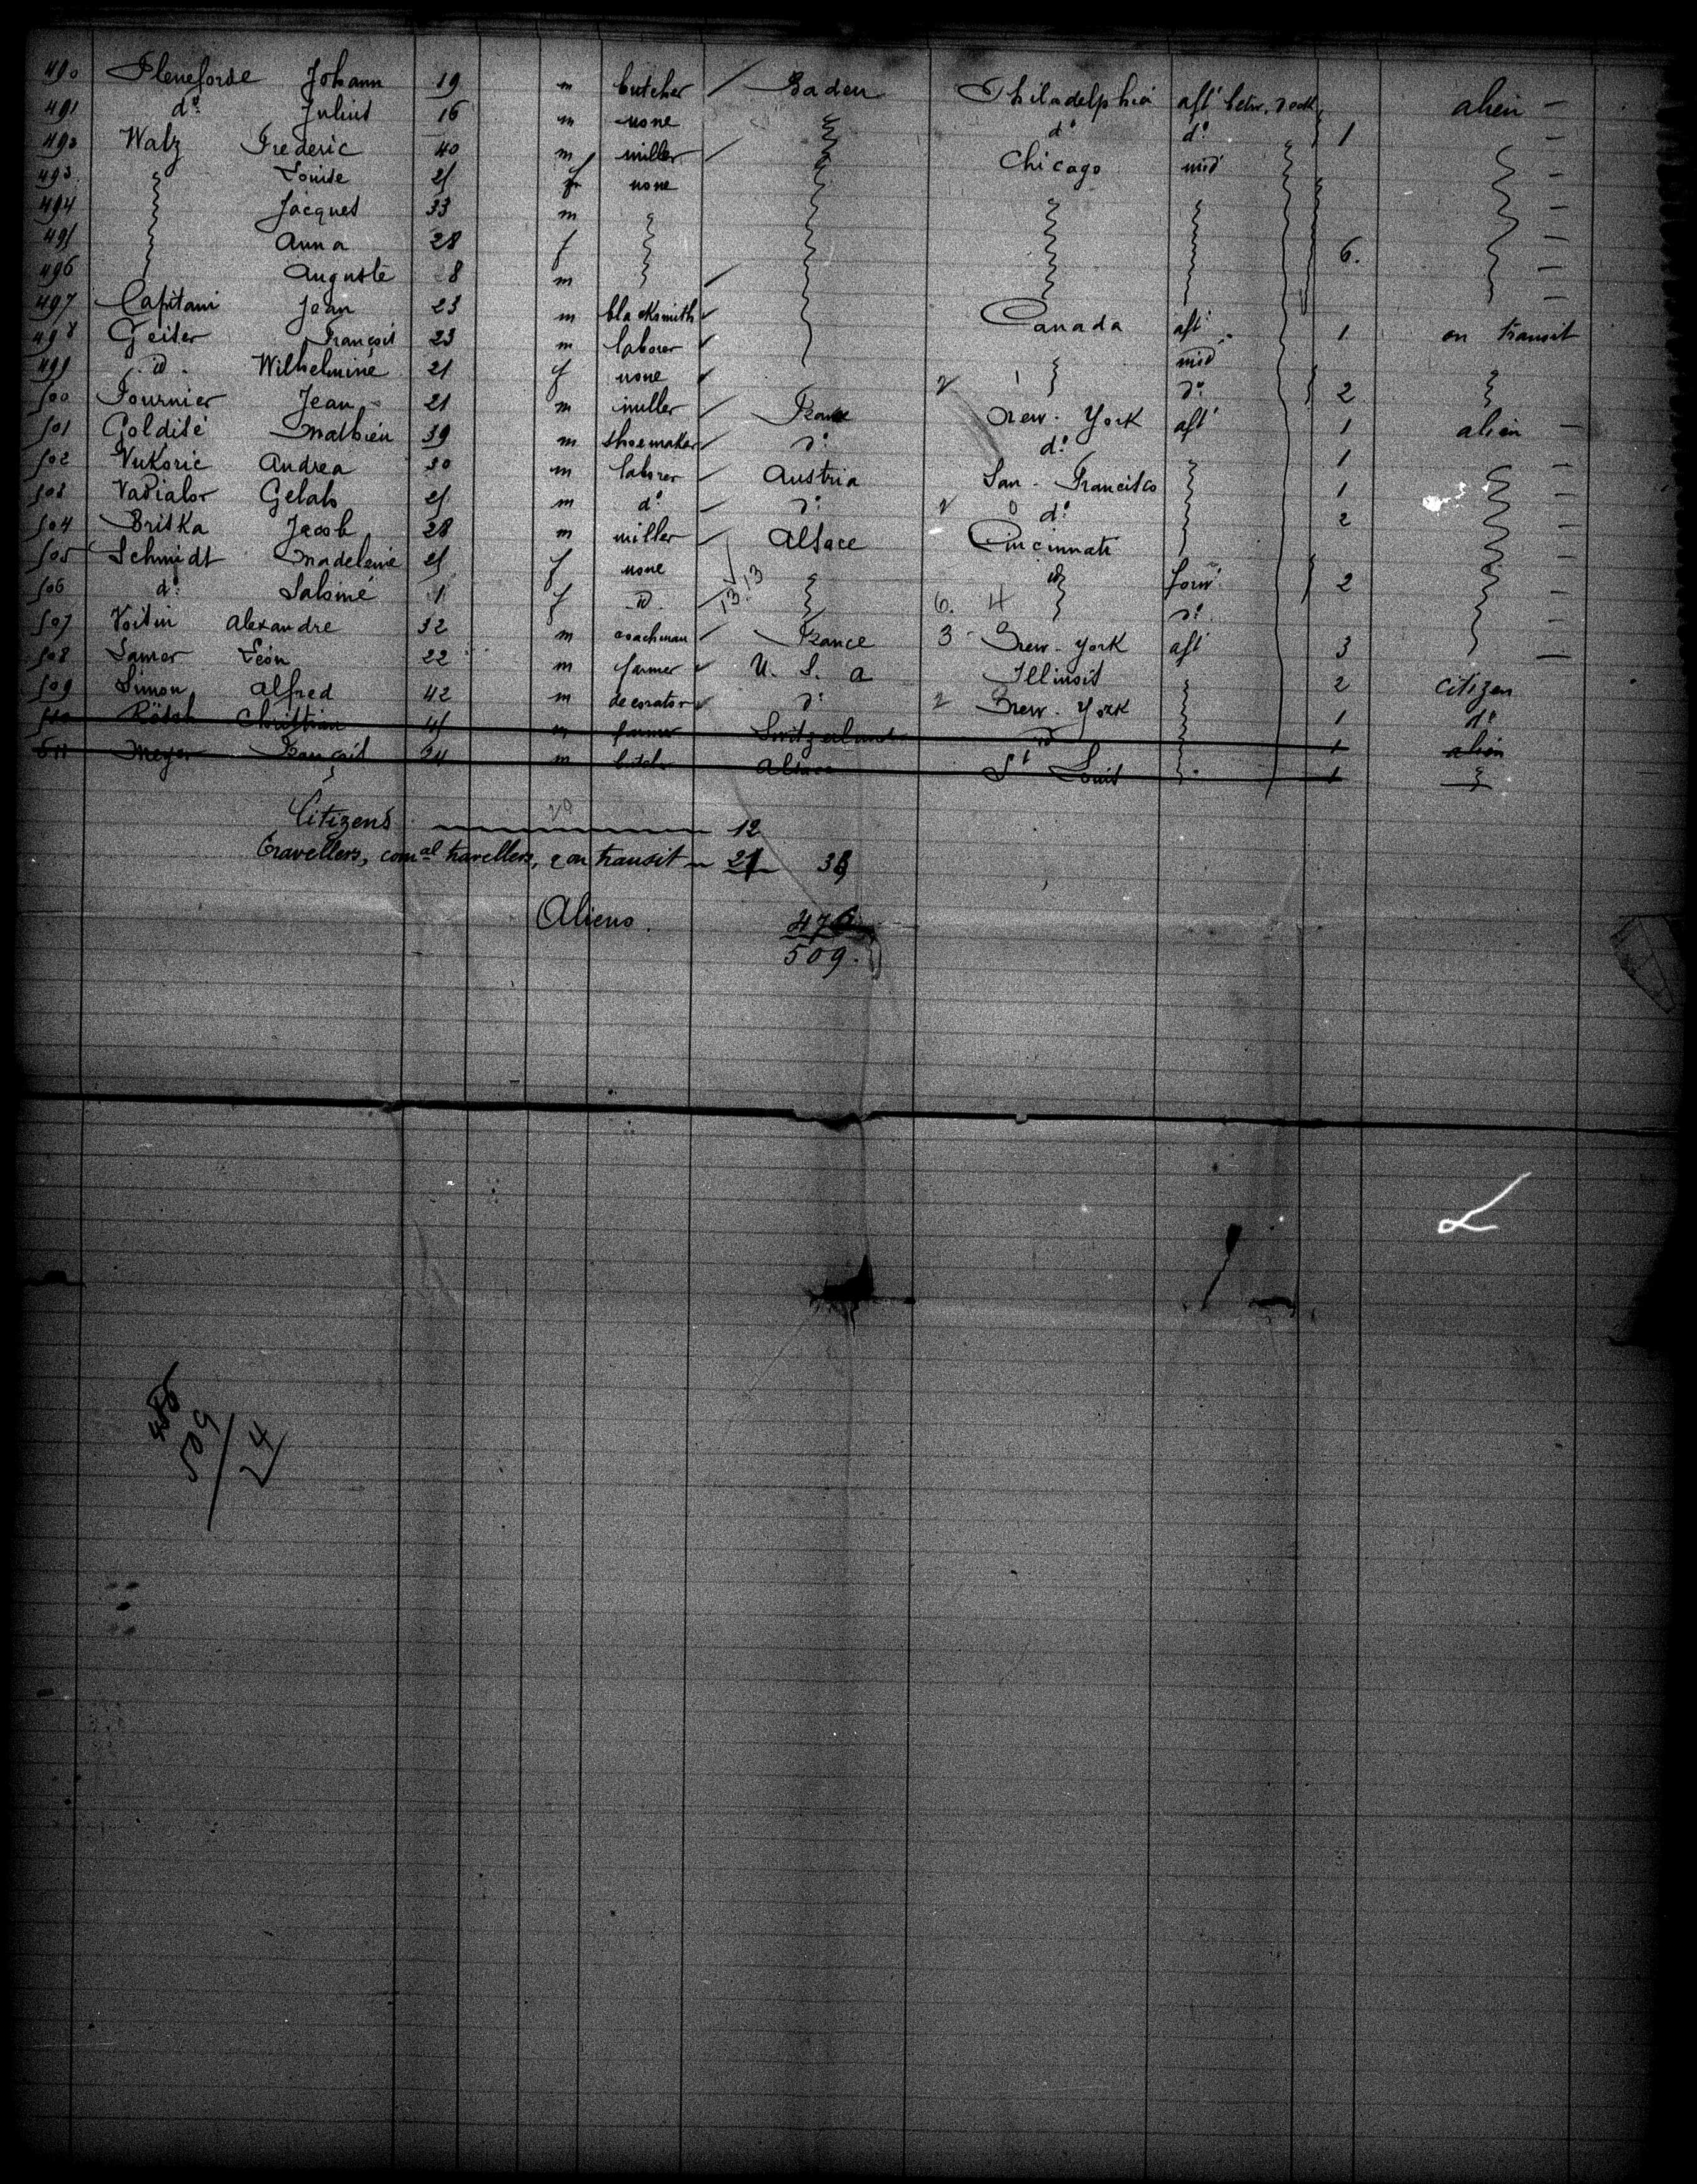 490 Johann 19 m butcher Baden Philadelphia aft betw. deck alien
491 do Julius 16 m none do do 1
492 Walz Frederic 40 m miller Chicago mid
493 Louise 25 f none
494 Jacques 33 m
495 Anna 28 f 6.
496 Auguste 8 m
497 Capitani Jean 23 m blacksmith Canada aft 1 on transit
498 Geiler François 23 m laborer mid
499 id. Wilhelmine 21 f none do 2
500 Fournier Jean 21 m miller France New-York aft 1 alien
501 Mathieu 39 m shoemaker do do 1
502 Vukoric Andrea 30 m laborer Austria San-Francisco 1
503 Gelato 25 m do do do 2
504 Britka Jacob 28 m miller Alsace Cincinnati
505 Schmidt Madeleine 25 f none id forw. 2
506 do Salomé 1 f id. 13.13 6. 4 do
507 Voitin Alexandre 32 m coachman France 3 New-York aft 3
508 Léon 22 m farmer U. S. a Illinois 2 citizen
509 Simon Alfred 42 m decorator do 2 New-York 1 do
510 Christian 45 m farmer Switzerland id 1 alien
511 Meyer François 24 m butcher Alsace St Louis 1
Citizens 12
Travellers, comal travellers, & on transit 21 33
Aliens. 476
509.
509
24